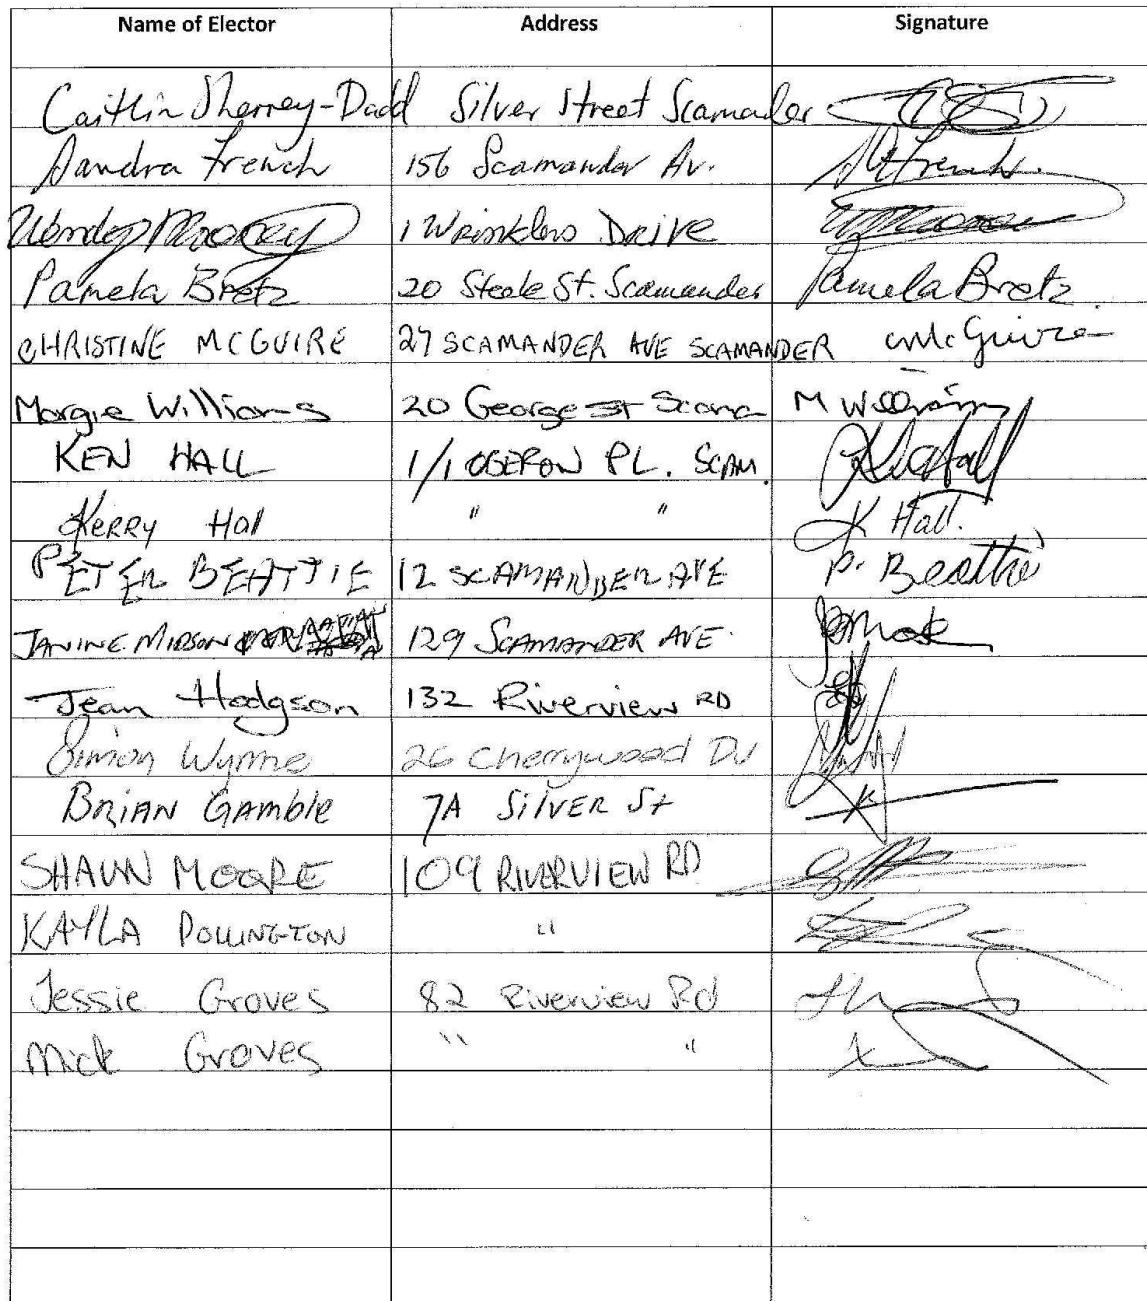 Name of Elector Address Signature
Caitlin Sherrey-Dadd Silver Street Scamander
Sandra French 156 Scamander Av.
Wendy Mooney 1 Winklers Drive
Pamela Bretz 20 Steele St. Scamander Pamela Bretz
CHRISTINE MCGUIRE 27 SCAMANDER AVE SCAMANDER CMcGuire
Margie Williams 20 George St Scama M Williams
KEN HALL 1/1 OBERON PL. SCAM. K Hall
KERRY Hall " " K Hall.
PETER BEATTIE 12 SCAMANDER AVE P. Beattie
JANINE MIDSON 129 SCAMANDER AVE.
Jean Hodgson 132 Riverview RD
Simon Wynne 26 Cherrywood Dv
BRIAN GAMble 7A SilVER St
SHAUN MOORE 109 RIVERVIEW RD
KAYLA POLLINGTON "
Jessie Groves 82 Riverview Rd
Mick Groves " "